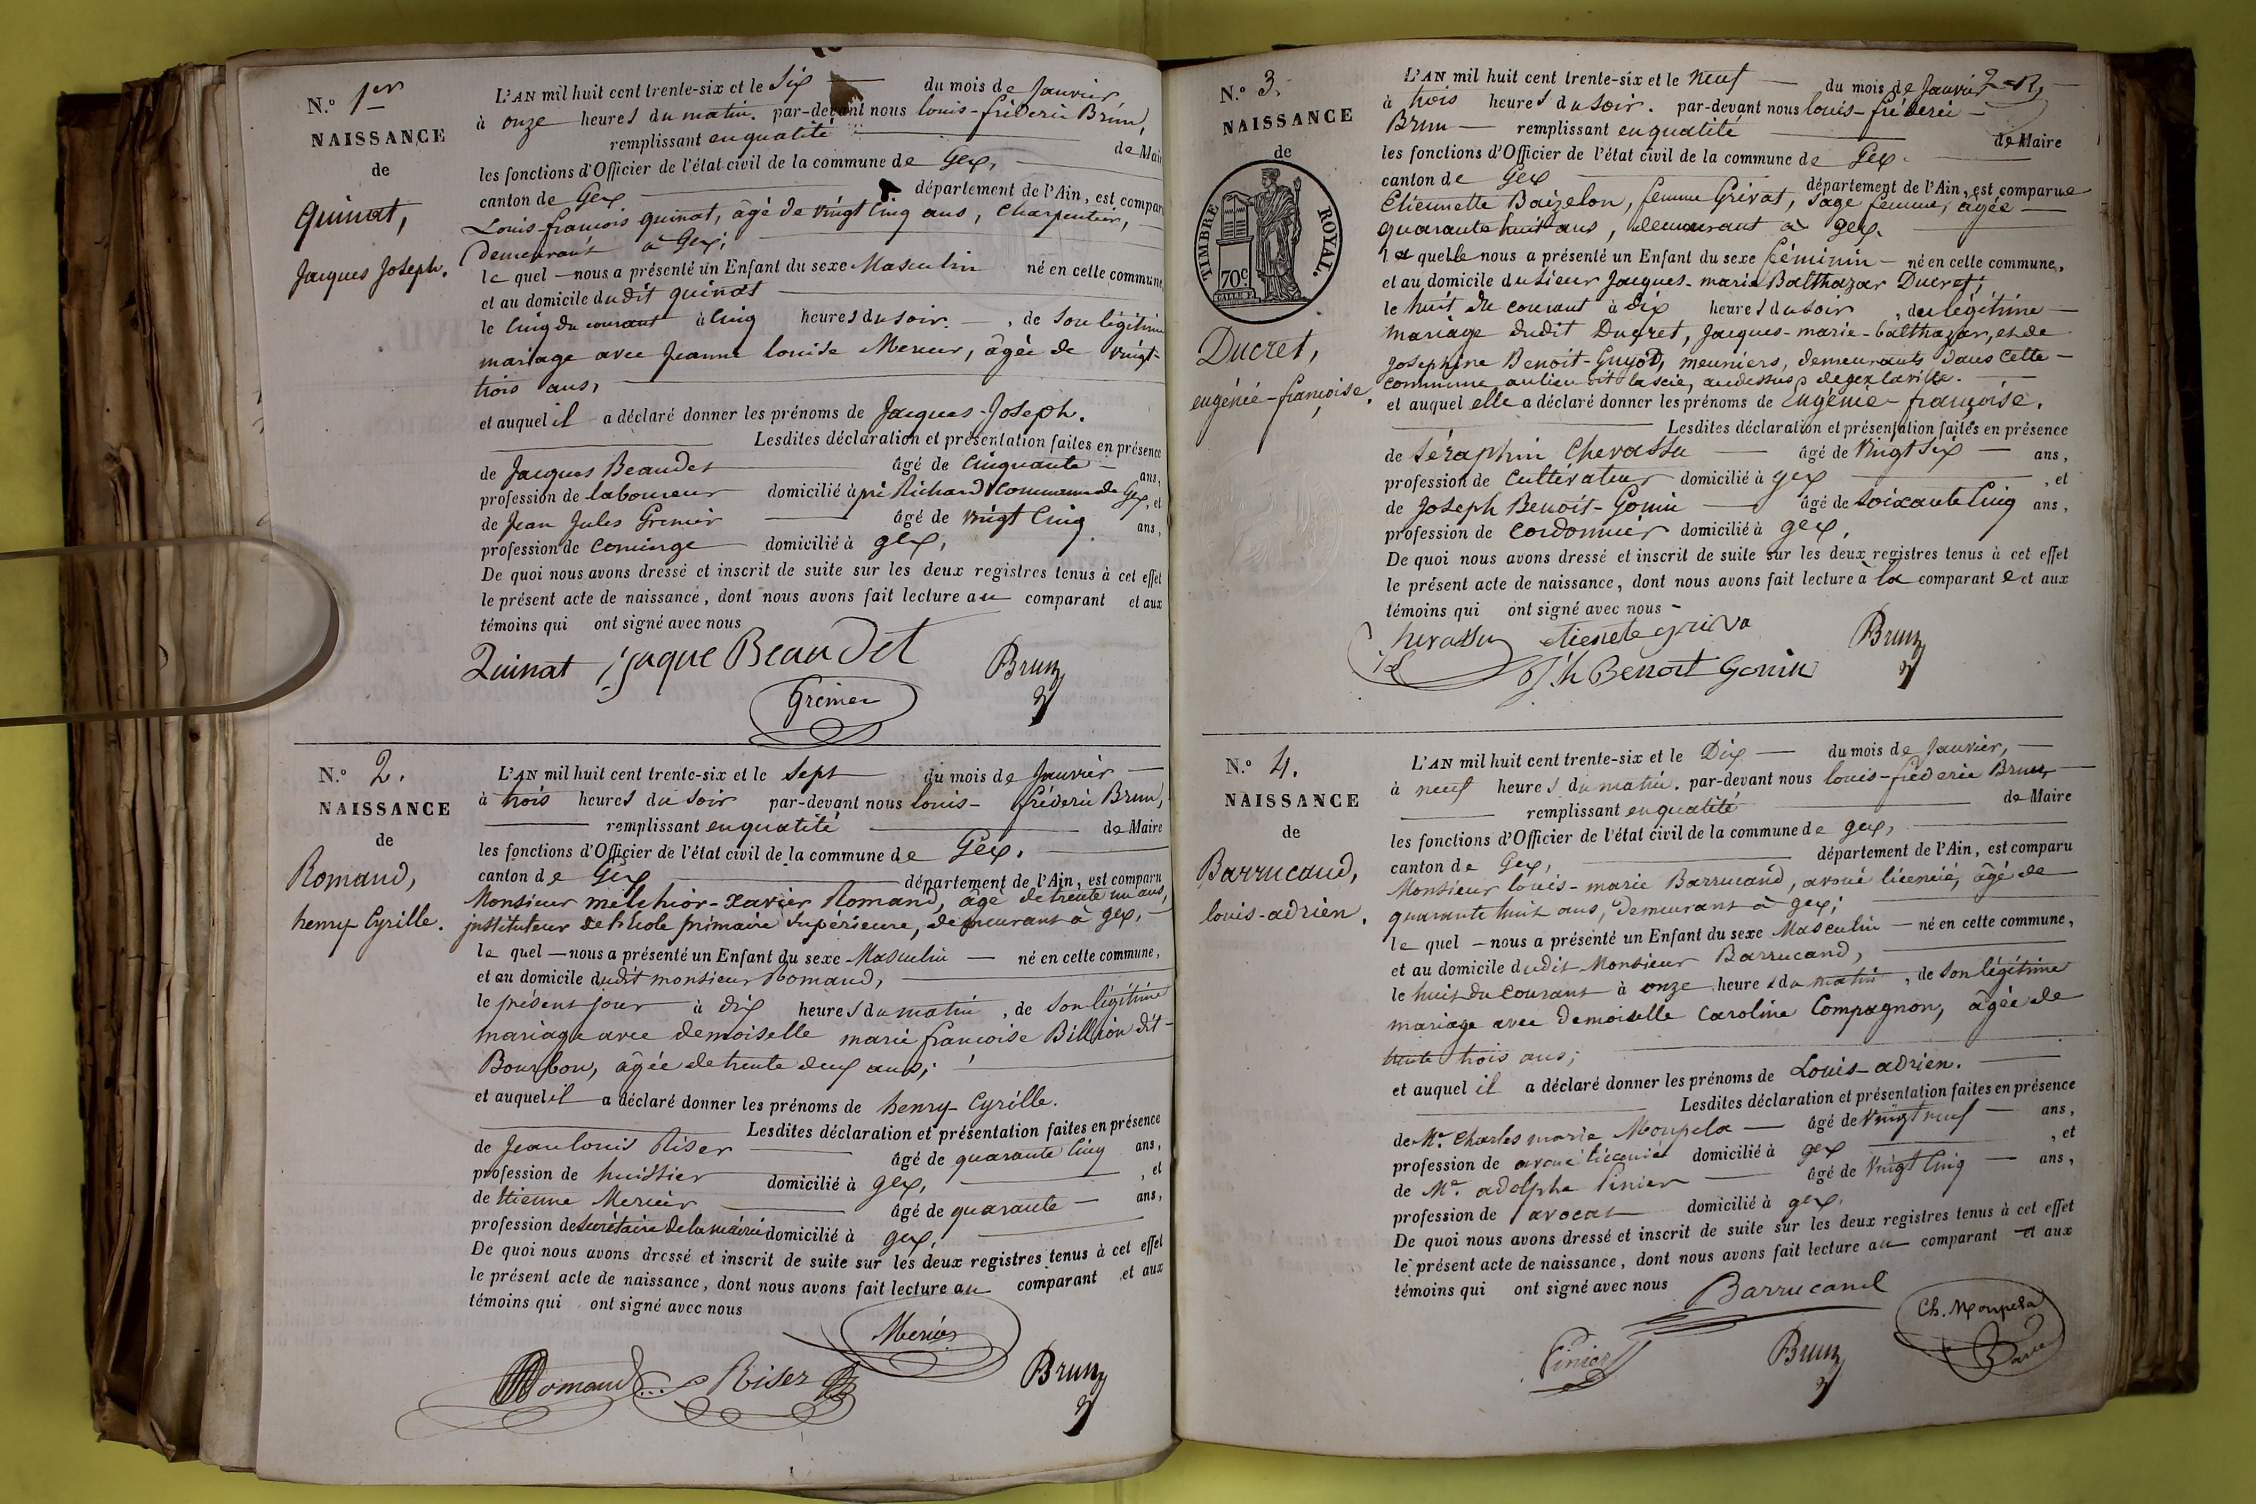 N.º 1er
NAISSANCE
de
Quinat,
Jacques Joseph.
L'AN mil huit cent trente-six et le Six du mois de Janvier,
à onze heures du matin. par-devant nous louis-fréderic Brun,
remplissant en qualité de Mair
les fonctions d'Officier de l'état civil de la commune de Gex,
canton de Gex département de l'Ain, est compar
Louis-françois quinat, âgé de vingt cinq ans, Charpentier,
Demeurant à Gex;
le quel nous a présenté un Enfant du sexe Masculin né en cette commune
et au domicile dudit quinat
le Cinq du courant à Cinq heures du soir. , de Son légitime
mariage avec Jeanne louise Mercier, âgée de vingt-
trois ans,
et auquel il a déclaré donner les prénoms de Jacques-Joseph.
Lesdites déclaration et présentation faites en présence
de Jacques Beaudet âgé de Cinquante ans,
profession de laboureur domicilié à pré Richard Commune de Gex, et
de Jean Jules Grenier âgé de vingt Cinq ans,
profession de domicilié à gex,
De quoi nous avons dressé et inscrit de suite sur les deux registres tenus à cet effet
le présent acte de naissance, dont nous avons fait lecture au comparant et aux
témoins qui ont signé avec nous
Quinat jaque Beaudet Brun
Grenier
N.º 2.
NAISSANCE
de
Romand,
henry Cyrille.
L'AN mil huit cent trente-six et le Sept du mois de Janvier
à trois heures du soir par-devant nous louis- fréderic Brun,
remplissant en qualité de Maire
les fonctions d'Officier de l'état civil de la commune de Gex.
canton de Gex département de l'Ain, est comparu
Monsieur melchior-xavier Romand, âgé de trente un ans,
instituteur de l'école primaire Supérieure, demeurant à gex,
le quel nous a présenté un Enfant du sexe Masculin né en cette commune,
et au domicile dudit monsieur Romand,
le présent jour à dix heures du matin , de Son légitime
mariage avec demoiselle marie françoise Billion dit-
Bourbon, âgée de trente deux ans;
et auquel il a déclaré donner les prénoms de henry Cyrille.
Lesdites déclaration et présentation faites en présence
de Jean louis Riser âgé de quarante Cinq ans,
profession de huissier domicilié à gex, , et
de Etienne Mercier âgé de quarante ans,
profession de Secrétaire de la mairie domicilié à gex,
De quoi nous avons dressé et inscrit de suite sur les deux registres tenus à cet effet
le présent acte de naissance, dont nous avons fait lecture au comparant et aux
témoins qui ont signé avec nous
Mercier
Romand Riser Brun
N.º 3.
NAISSANCE
de
TIMBRE ROYAL.
70c.
Ducret,
eugénie-françoise.
L'AN mil huit cent trente-six et le neuf du mois de Janvier
à trois heures du soir. par-devant nous louis-fréderic
Brun remplissant en qualité de Maire
les fonctions d'Officier de l'état civil de la commune de Gex.
canton de Gex département de l'Ain, est comparue
Etiennette Baizelon, femme Grivat, Sage femme, âgée
quarante huit ans, demeurant à gex.
la quelle nous a présenté un Enfant du sexe féminin né en cette commune,
et au domicile du Sieur Jacques-marie Balthazar Ducret;
le huit du courant à dix heures du soir , du légitime
mariage dudit Ducret, Jacques-marie-balthazar, et de
Josephine Benoit-Guyod, meuniers, demeurants dans cette
Commune au lieu dit la scie, au dessus de gex la ville.
et auquel elle a déclaré donner les prénoms de Eugénie-françoise.
Lesdites déclaration et présentation faites en présence
de Séraphin Chevassu âgé de vingt Six ans,
profession de Cultivateur domicilié à gex , et
de Joseph Benoit-Gonin âgé de soixante Cinq ans,
profession de Cordonnier domicilié à gex,
De quoi nous avons dressé et inscrit de suite sur les deux registres tenus à cet effet
le présent acte de naissance, dont nous avons fait lecture à la comparante et aux
témoins qui ont signé avec nous
Chevassu etienete griva Brun
Jh Benoit Gonin
N.º 4.
NAISSANCE
de
Barrucand,
louis-adrien.
L'AN mil huit cent trente-six et le Dix du mois de Janvier,
à neuf heures du matin. par-devant nous louis-fréderic Brun
remplissant en qualité de Maire
les fonctions d'Officier de l'état civil de la commune de gex,
canton de Gex, département de l'Ain, est comparu
Monsieur louis-marie Barrucand, avoué licencié, âgé de
quarante huit ans, demeurant à gex;
le quel nous a présenté un Enfant du sexe Masculin né en cette commune,
et au domicile dudit Monsieur Barrucand,
le huit du courant à onze heures du matin , de son légitime
mariage avec Demoiselle Caroline Compagnon, âgée de
trente trois ans;
et auquel il a déclaré donner les prénoms de Louis-adrien.
Lesdites déclaration et présentation faites en présence
de Me. Charles marie Monpela âgé de vingt neuf ans,
profession de avoué licencié domicilié à gex , et
de Me. adolphe Pinier âgé de vingt Cinq ans,
profession de avocat domicilié à gex,
De quoi nous avons dressé et inscrit de suite sur les deux registres tenus à cet effet
le présent acte de naissance, dont nous avons fait lecture au comparant et aux
témoins qui ont signé avec nous Barrucand
Ch. Monpela
Pinier Brun